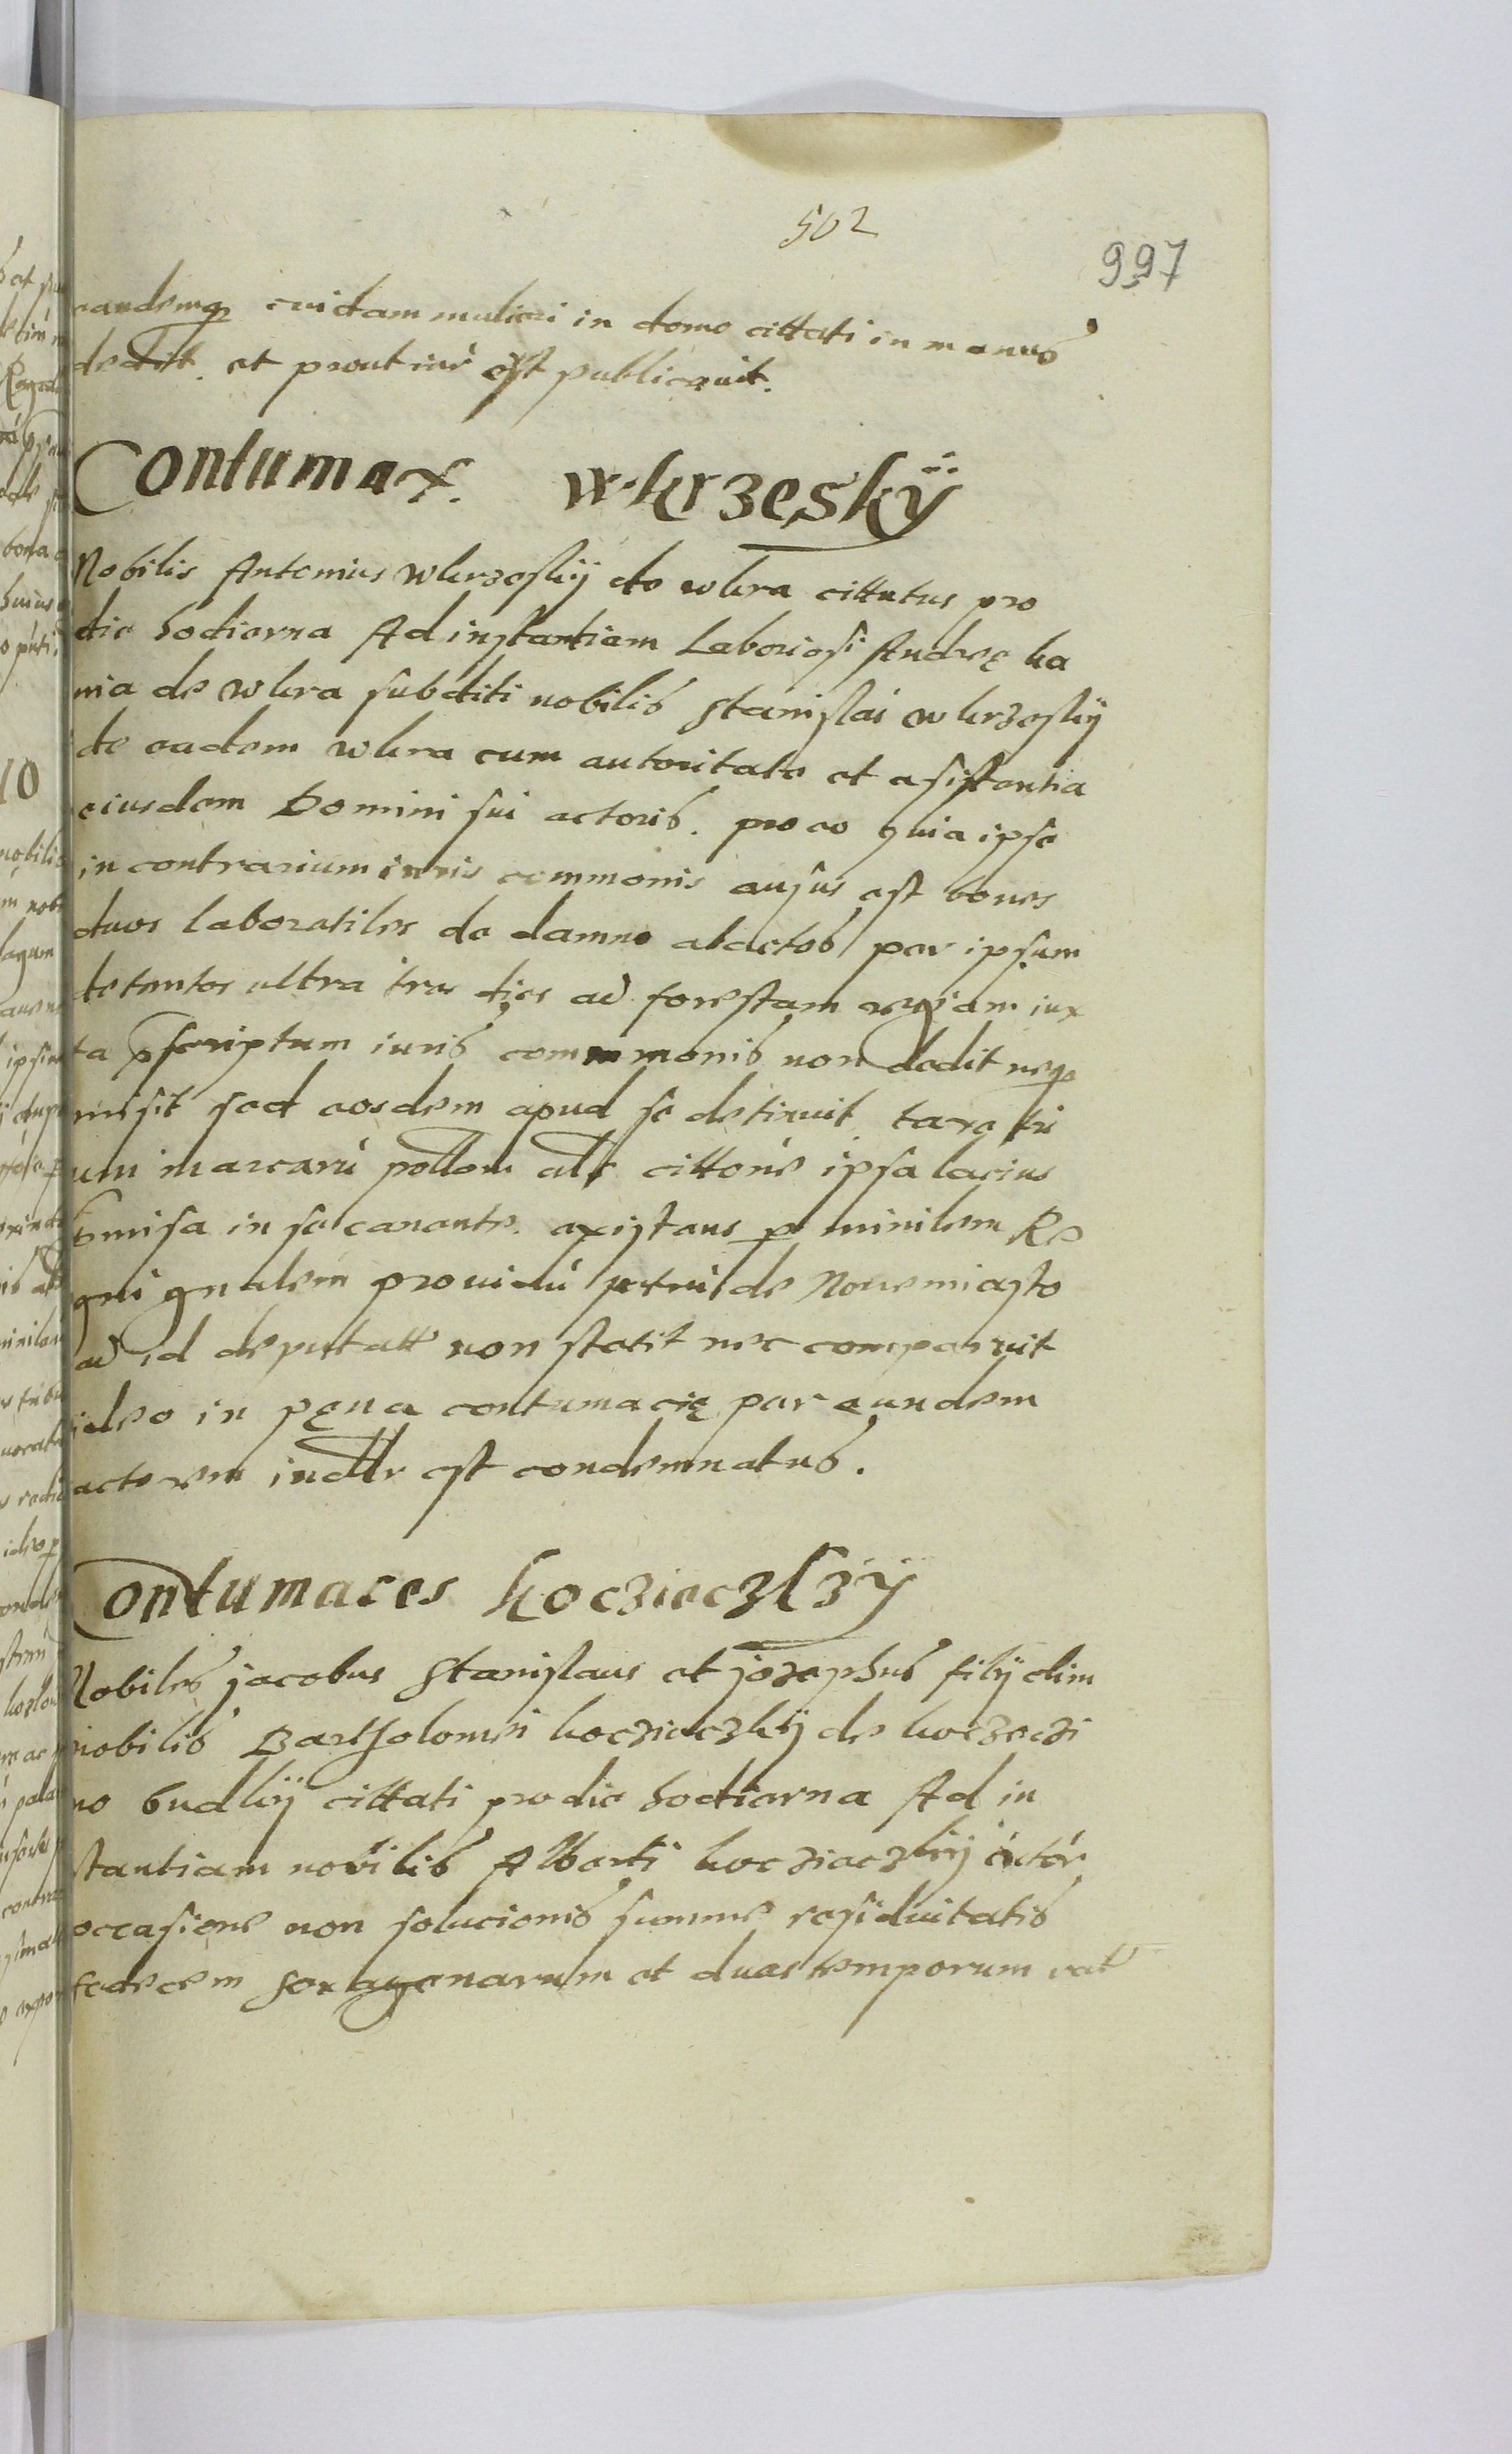 502
997
eandemq̃ cuidam mulieri in domo cittati in manus
dedit et prout iur̃ est publicauit.
Contumax. wkrzeskÿ
Nobilis Antonius wkrzeskÿ de wkra cittatus pro
die hodierna Ad instantiam Laboriosi Andreę ka
nia de wkra subditi nobilis stanislai wkrzeskÿ
de eadem wkra cum autoritate et asistentia
eiusdem Domini sui actoris. pro eo quia ipse
in contrarium iuris commonis ausus est boues
duos laboratiles de damno abactos per ipsum
detentos ultra tres dies ad forestam regiam iux
ta pscriptum iuris commmonis non dedit neq̃
misit sed eosdem apud se detinuit taxe tri
um marcarũ pollon als cittone ipsa lacius
pmisa in se canente. existens p minilem Re
gni gnalem prouidũ petrũ de Nouemiasto
ad id deputatt non stetit nec comparuit
ideo in pęna contumacię per eundem
actorem indlr est condemnatus.
Contumaces koczieczkzÿ
Nobiles jacobus stanislaus et josephus filÿ olim
nobilis Bartholomei koczieczkÿ de koczeczi
no budkÿ cittati pro die hodierna Ad in
stantiam nobilis Alberti koczieczkÿ actor
occasione non solucionis summe residuitatis
sedecem sexagenarum et duas temporum rat